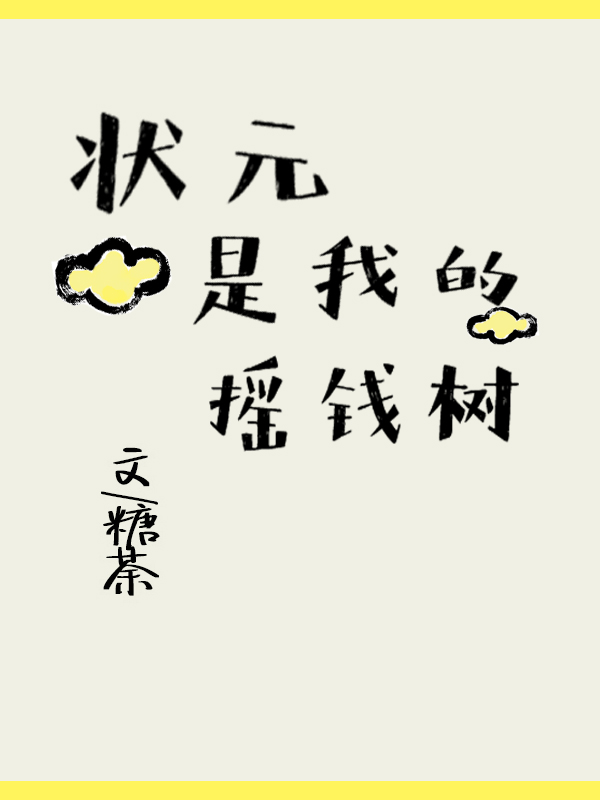 状元
是我的
摇钱树
文/糖茶